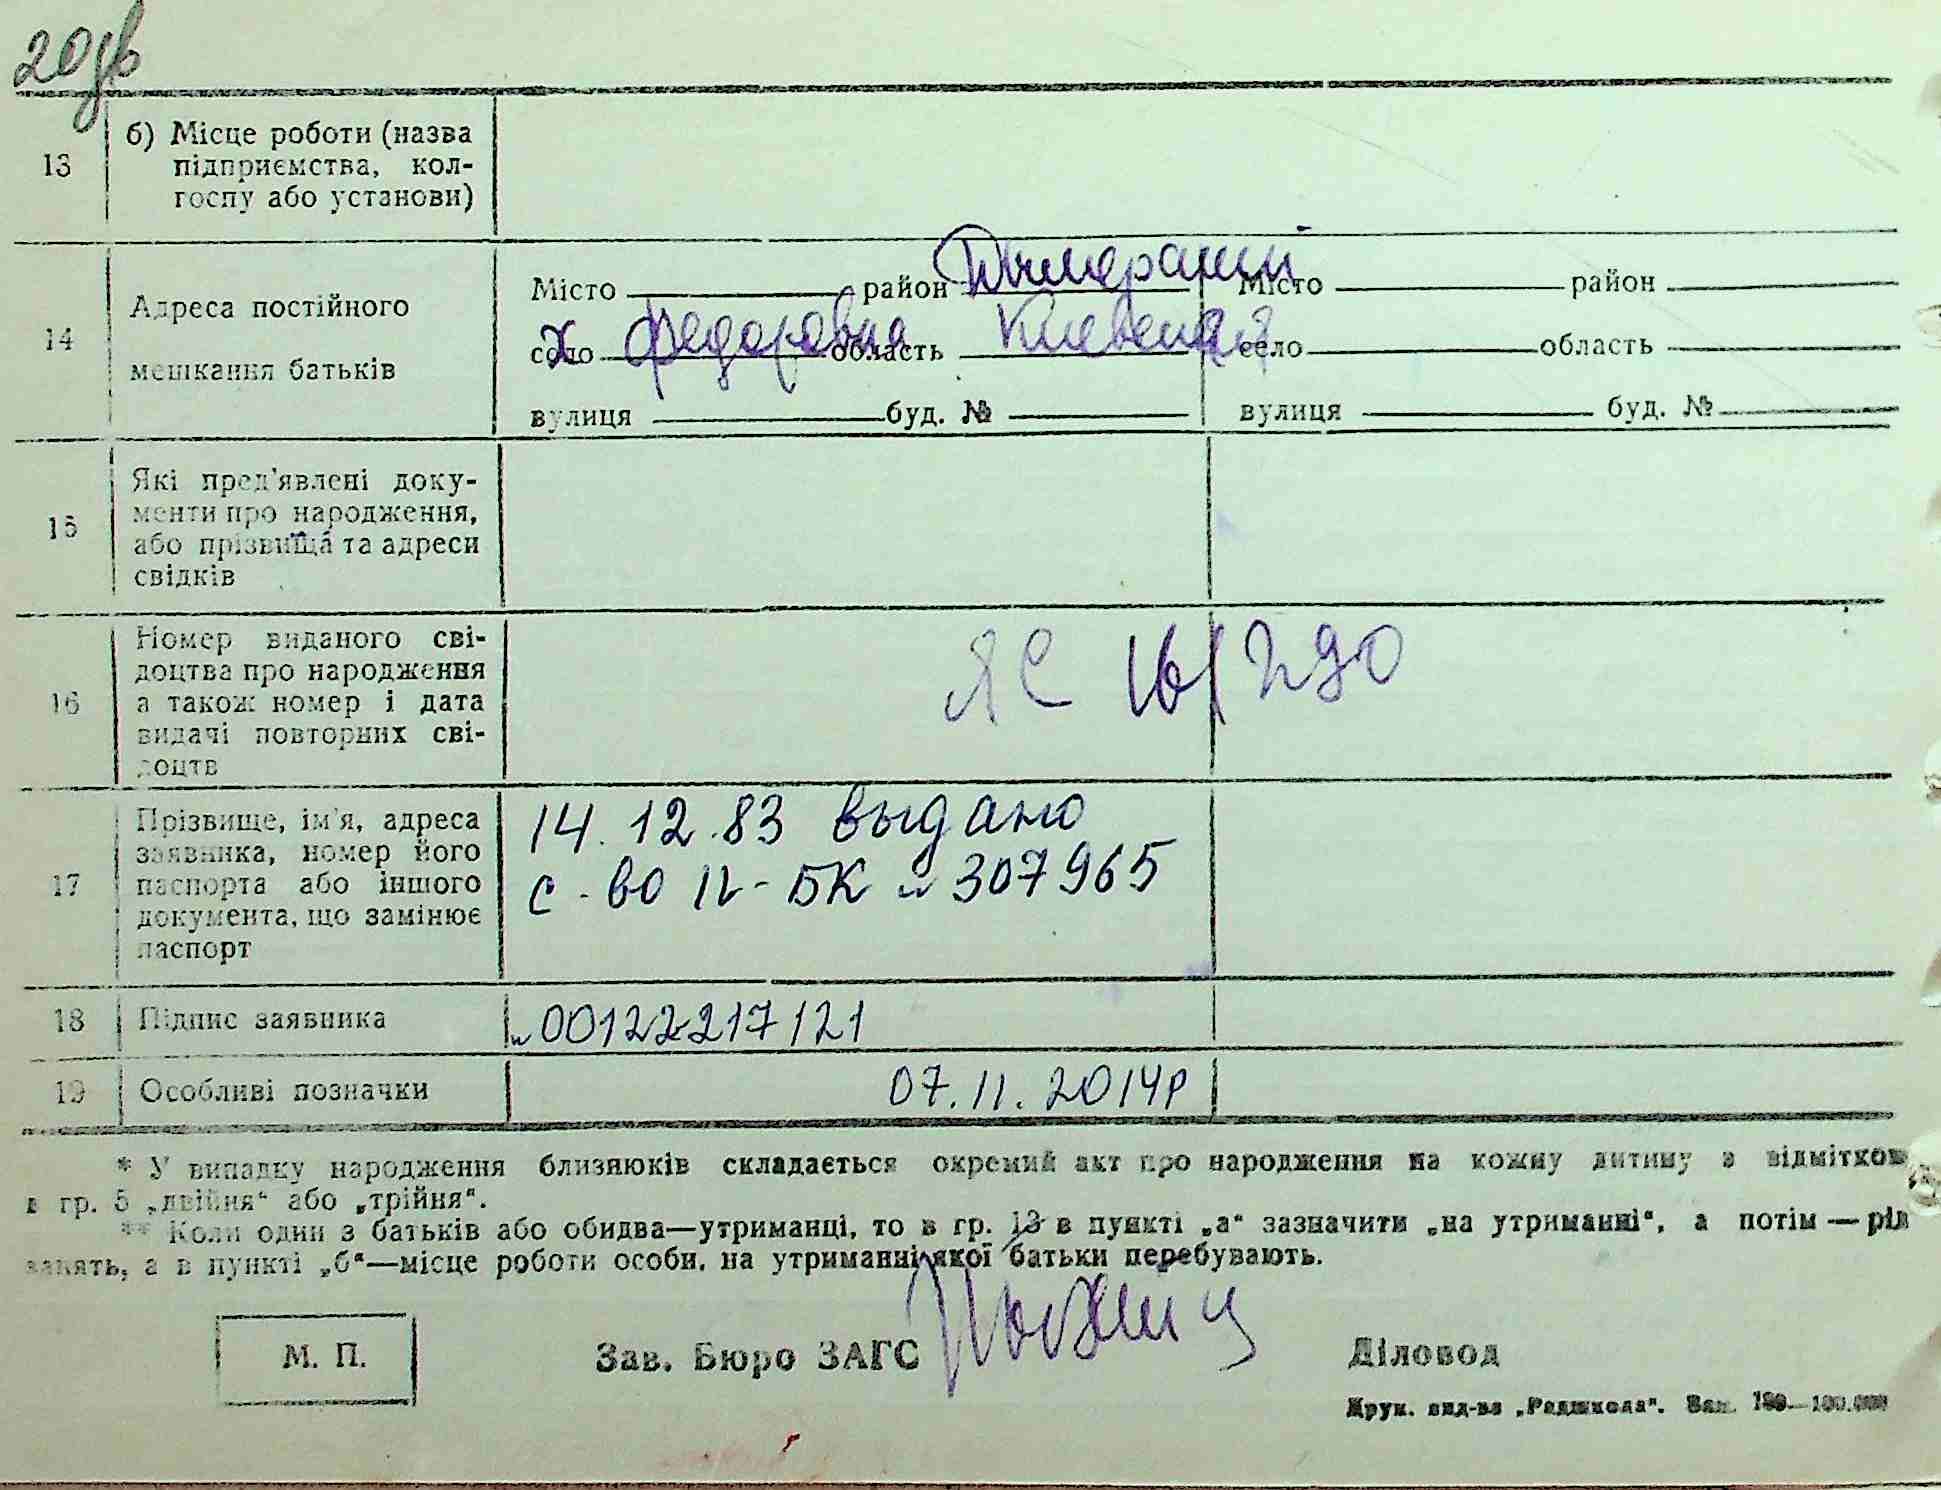 20зв
13
б) Місце роботи (назва
підприємства, кол-
госпу або установи)
14
Адреса постійного
мешкання батьків
Місто район Дымерский Місто район
село х Федоровка область Киевская село область
вулиця буд. № вулиця буд. №
15
Які пред'явлені доку-
менти про народження,
або прізвища та адреси
свідків
16
Номер виданого сві-
доцтва про народження
а також номер і дата
видачі повторних сві-
доцтв
ЯС
17
Прізвище, ім'я, адреса
заявника, номер його
паспорта або іншого
документа, що замінює
паспорт
14.12.83 выдано
с-во IV-БК № 307965
18 Підпис заявника № 00122217121
19 Особливі позначки 07.11.2014р
* У випадку народження близнюків складається окремий акт про народження на кожну дитину з відміткою
в гр. 5 „двійня“ або „трійня“.
** Коли один з батьків або обидва—утриманці, то в гр. 13 в пункті „а“ зазначити „на утриманні“, а потім — рід
занять, а в пункті „б“—місце роботи особи, на утриманні якої батьки перебувають.
М. П.
Зав. Бюро ЗАГС
Діловод
Друк. вид-ва „Радшкола“. Зам. 100.000